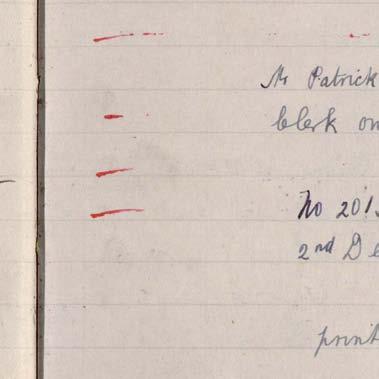 Mr Patrick
Clerk on
No 201
2nd De
print